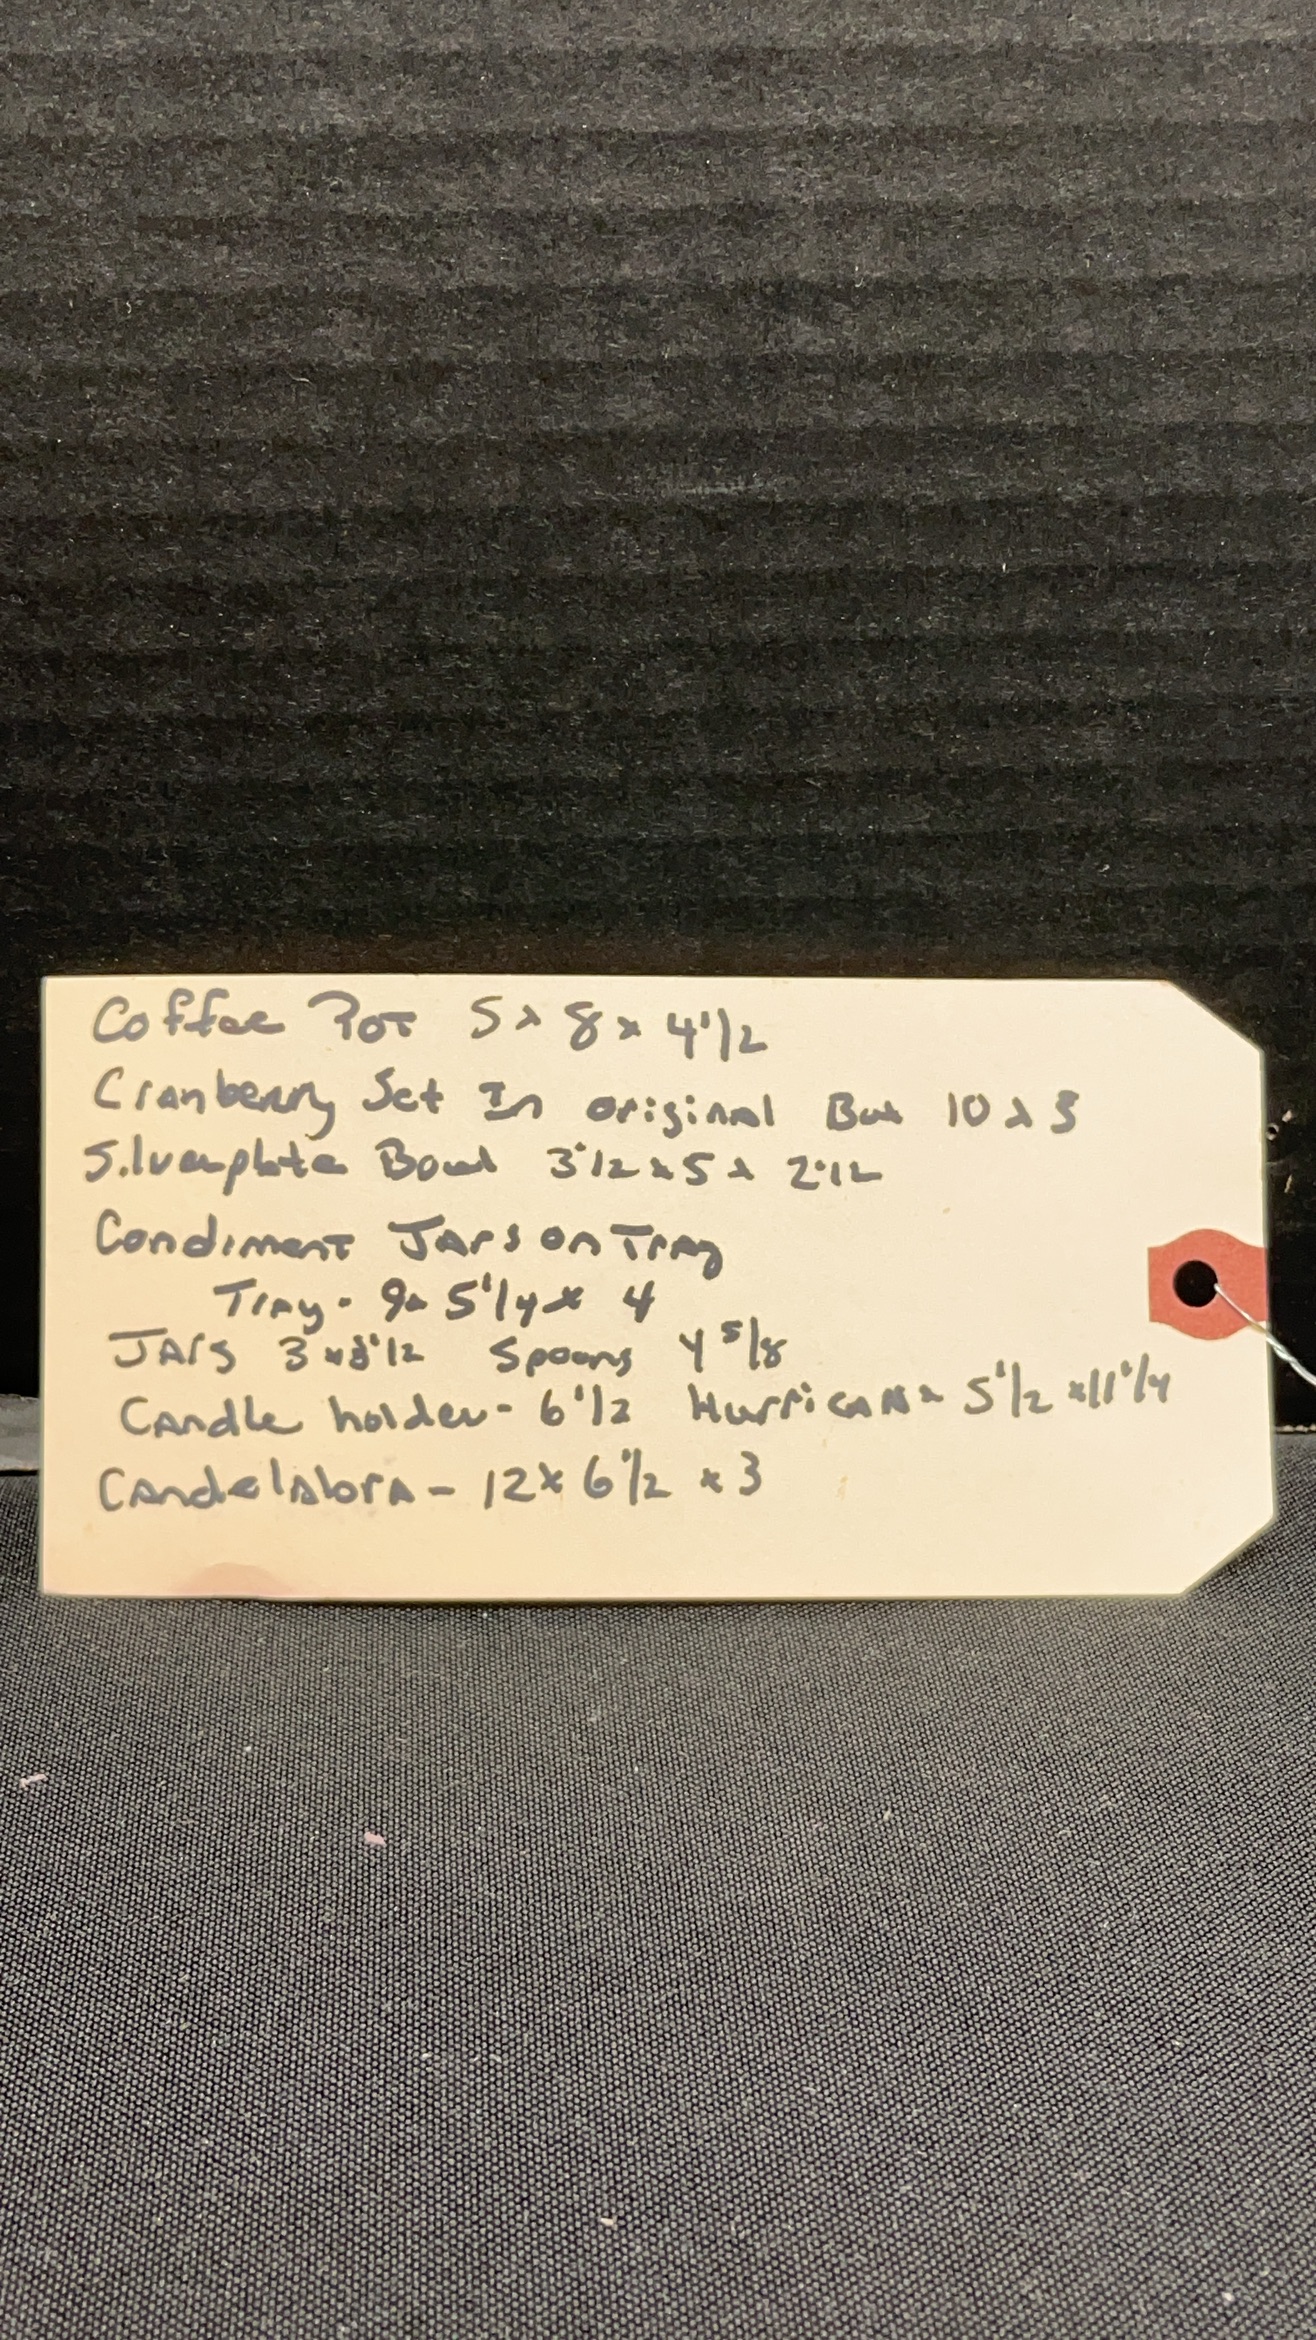 Coffee Pot 5 x 8 x 4 1/2
Cranberry Set In original Box 10 x
Silverplate Bowl 3 1/2 x 5 x 2 1/2
Condiment Jars on Tray
Tray - 9 x 5 1/4 x 4
Jars 3 x 1/2 Spoons 4 5/8
Candle holder - 6 1/2 Hurricane 5 1/2 x 11 1/4
Candelabora - 12 x 6 1/2 x 3